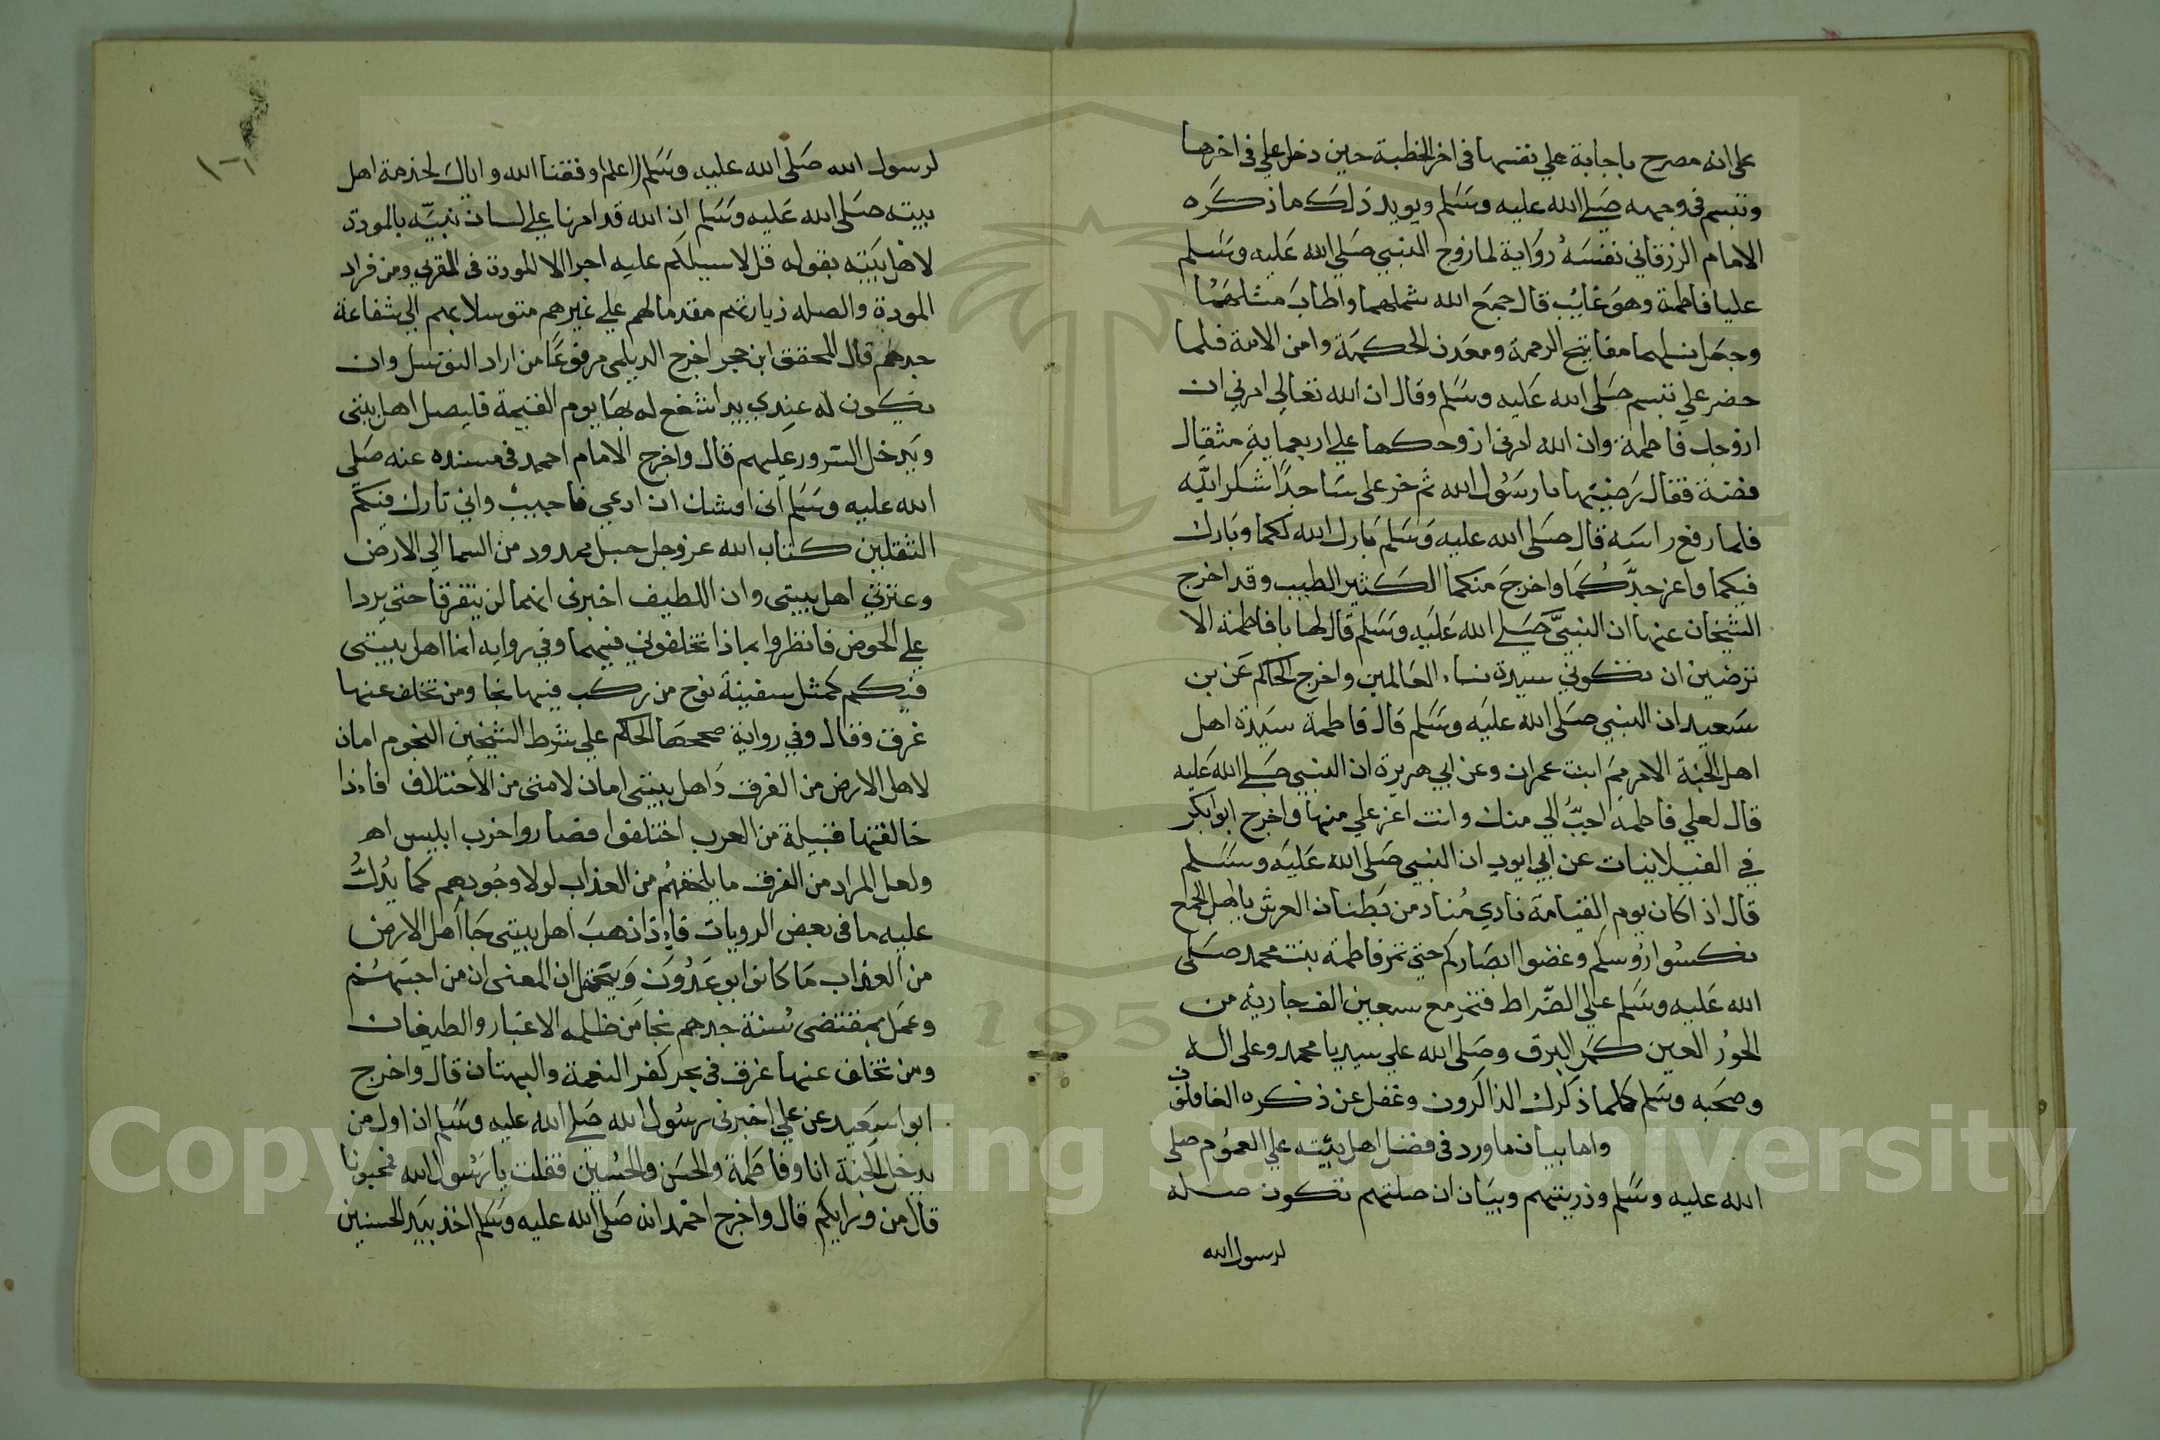 على انه مصرح باجابة علي بنفسها في اخر الخطبة حين دخل علي في اخرها
وتبسم في وجهه صلى الله عليه وسلم ويويد ذلك ما ذكره
الامام الزرقاني نفسه رواية لما زوج النبي صلي الله عليه وسلم
عليا فاطمة وهو غايب قال جمع الله شملهما واطاب مثلهما
وجعل نسلهما مفاتيح الرحمة ومعدن الحكمة وامن الامة فلما
حضر علي تبسم صلى الله عليه وسلم وقال ان الله تعالي امرني ان
ازوجك فاطمة وان الله امرني ازوجكها علي اربعماية مثقال
فضة فقال رضيتها يا رسول الله ثم خر علي ساجدا شكرا لله
فلما رفع راسه قال صلى الله عليه وسلم بارك الله لكما وبارك
فيكما واعز جدكما واخرج منكما الكثير الطيب وقد اخرج
الشيخان عنها ان النبي صلي الله عليه وسلم قال لها يا فاطمة الا
ترضين ان تكوني سيدة نساء العالمين واخرج الحاكم عن بن
سعيد ان النبي صلى الله عليه وسلم قال فاطمة سيدة اهل
اهل الجنة الا مريم ابنت عمران وعن ابي هريرة ان النبي صلي الله عليه
قال لعلي فاطمة احب الي منك وانت اعز علي منها واخرج ابوا بكر
في الغيلانيات عن ابي ايوب ان النبي صلى الله عليه وسلم
قال اذا كان يوم القيامة نادي مناد من بطنان العرش يا اهل الجمع
نكسوا روسكم وغضوا ابصاركم حتى تمر فاطمة بنت محمد صلى
الله عليه وسلم علي الصراط فتمر مع سبعين الف جارية من
الحور العين كمر البرق وصلى الله علي سيديا محمد وعلى اله
وصحبه وسلم كلما ذكرك الذاكرون وغفل عن ذكره الغافلون
واما بيان ما ورد في فضل اهل بيته علي العموم صلى
الله عليه وسلم وذريتهم وبيان ان صلتهم تكون صله
لرسول الله
١٦
لرسول الله صلى الله عليه وسلم اعلم وفقنا الله واياك لخدمة اهل
بيته صلى الله عليه وسلم ان الله قد امرنا علي لسان نبيه بالمودة
لاهل بيته بقوله قل لا اسيلكم عليه اجرا الا المودة في القربي ومن فراد
المودة والصله زيارتهم مقدما لهم علي غيرهم متوسلا بهم الي شفاعة
جدهم قال المحقق ابن حجر اخرج الديلمي مرفوعا من اراد التوسل وان
يكون له عندي يد اشفع له بها يوم القيمة فليصل اهل بيتي
ويدخل السرور عليهم قال واخرج الامام احمد في مسنده عنه صلى
الله عليه وسلم اني اوشك ان ادعي فاجيب واني تارك فيكم
الثقلين كتاب الله عز وجل حبل ممدود من السما الي الارض
وعترتي اهل بيتي وان اللطيف اخبرني انهما لن يتفرقا حتى يردا
علي الحوض فانظروا بماذا تخلفوني فيهما وفي رواية انما اهل بيتي
فيكم كمثل سفينة نوح من ركب فيها نجا ومن تخلف عنها
غرق وقال وفي رواية صححها الحاكم علي شرط الشيخين النجوم امان
لاهل الارض من الغرق واهل بيتي امان لامتي من الاختلاف فاذا
خالفتها قبيلة من العرب اختلفوا فصاروا حزب ابليس اهـ
ولعل المراد من الغرق ما يلحقهم من العذاب لولا وجودهم كما يدل
عليه ما في بعض الرويات فاذا ذهب اهل بيتي جا اهل الارض
من العذاب ما كانوا يوعدون ويحتمل ان المعنى ان من احبهم
وعمل بمقتضى سنة جدهم نجا من ظلمه الاغيار والطيغان
ومن تخلف عنها غرق في بحر كفر النعمة والبهتان قال واخرج
ابوا سعيد عن علي اخبرني رسول الله صلى الله عليه وسلم ان اول من
يدخل الجنة انا وفاطمة والحسن والحسين فقلت يا رسول الله فمحبونا
قال من ورايكم قال واخرج احمد انه صلى الله عليه وسلم اخذ بيد الحسنين
Copyright © King Saud University
195